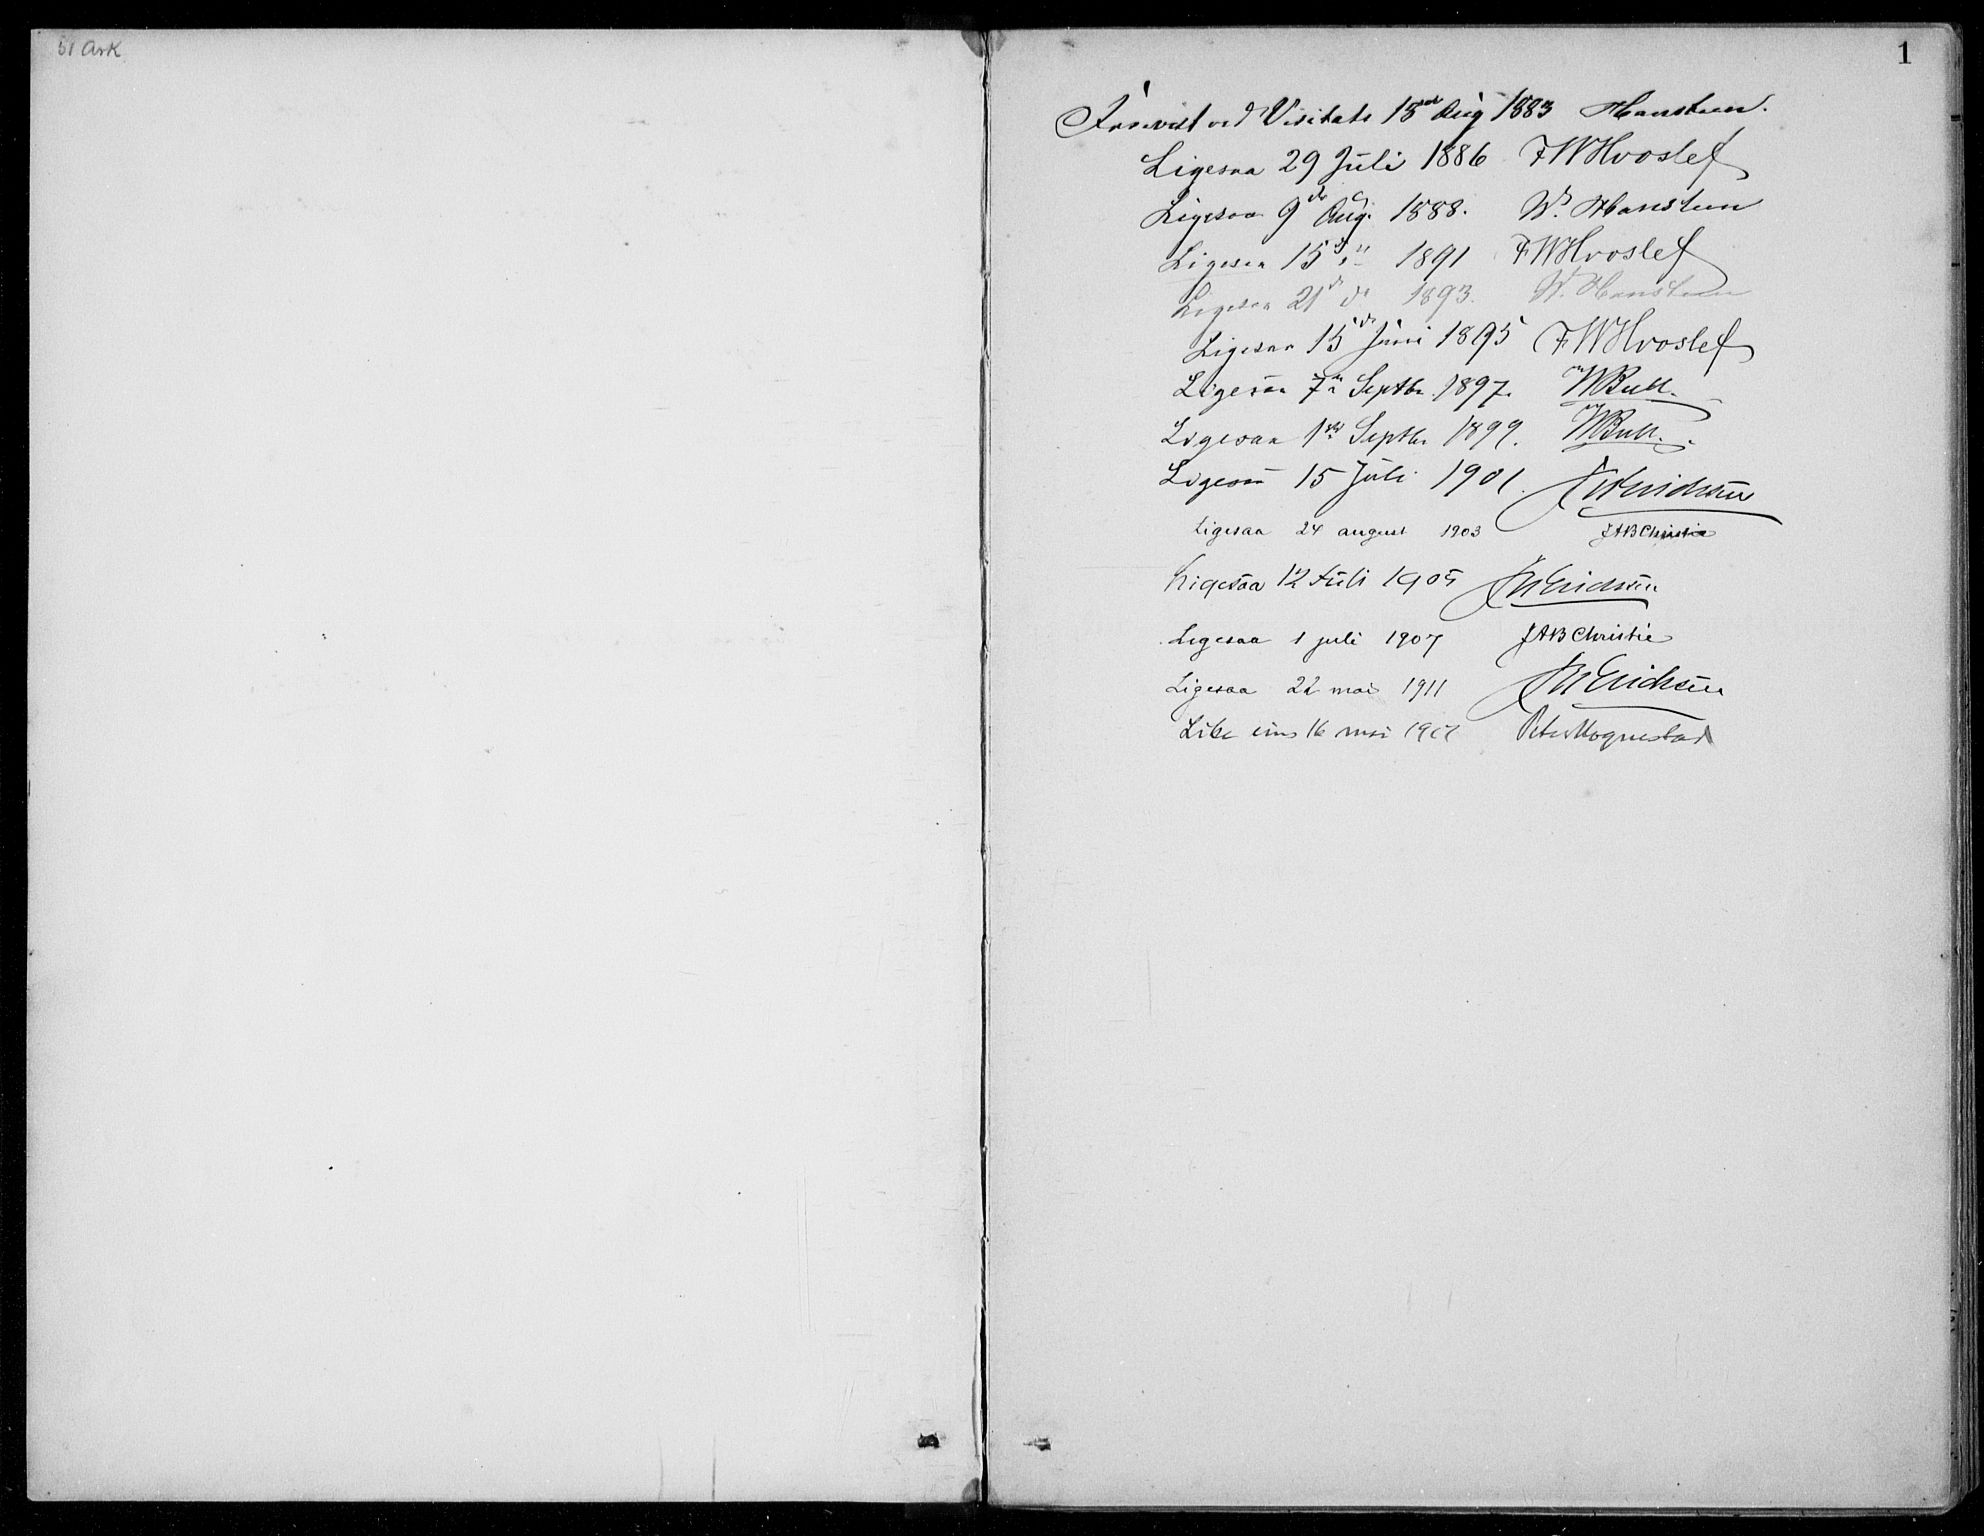 51 Ark
1
Forevist ved Visitats 18 Aug 1883 Hansteen.
Ligesaa 29 Juli 1886 FWHvoslef
Ligesaa 9de Aug. 1888. W. Hansteen
Ligesaa 15 1891 FWHvoslef
Ligesaa 21de do 1893. W. Hansteen
Ligesaa 15de Juni 1895 FWHvoslef
Ligesaa 7de Septbr. 1897. Bull.
Ligesaa 1ste Septbr 1899. Bull.
Ligesaa 15 Juli 1901. Erichsen
Ligesaa 24 august 1903 JAB Christie
Ligesaa 12 Juli 1905 Erichsen
Ligesaa 1 juli 1907 JAB Christie
Ligesaa 22 mai 1911 Erichsen
16 mai Peter Hognestad